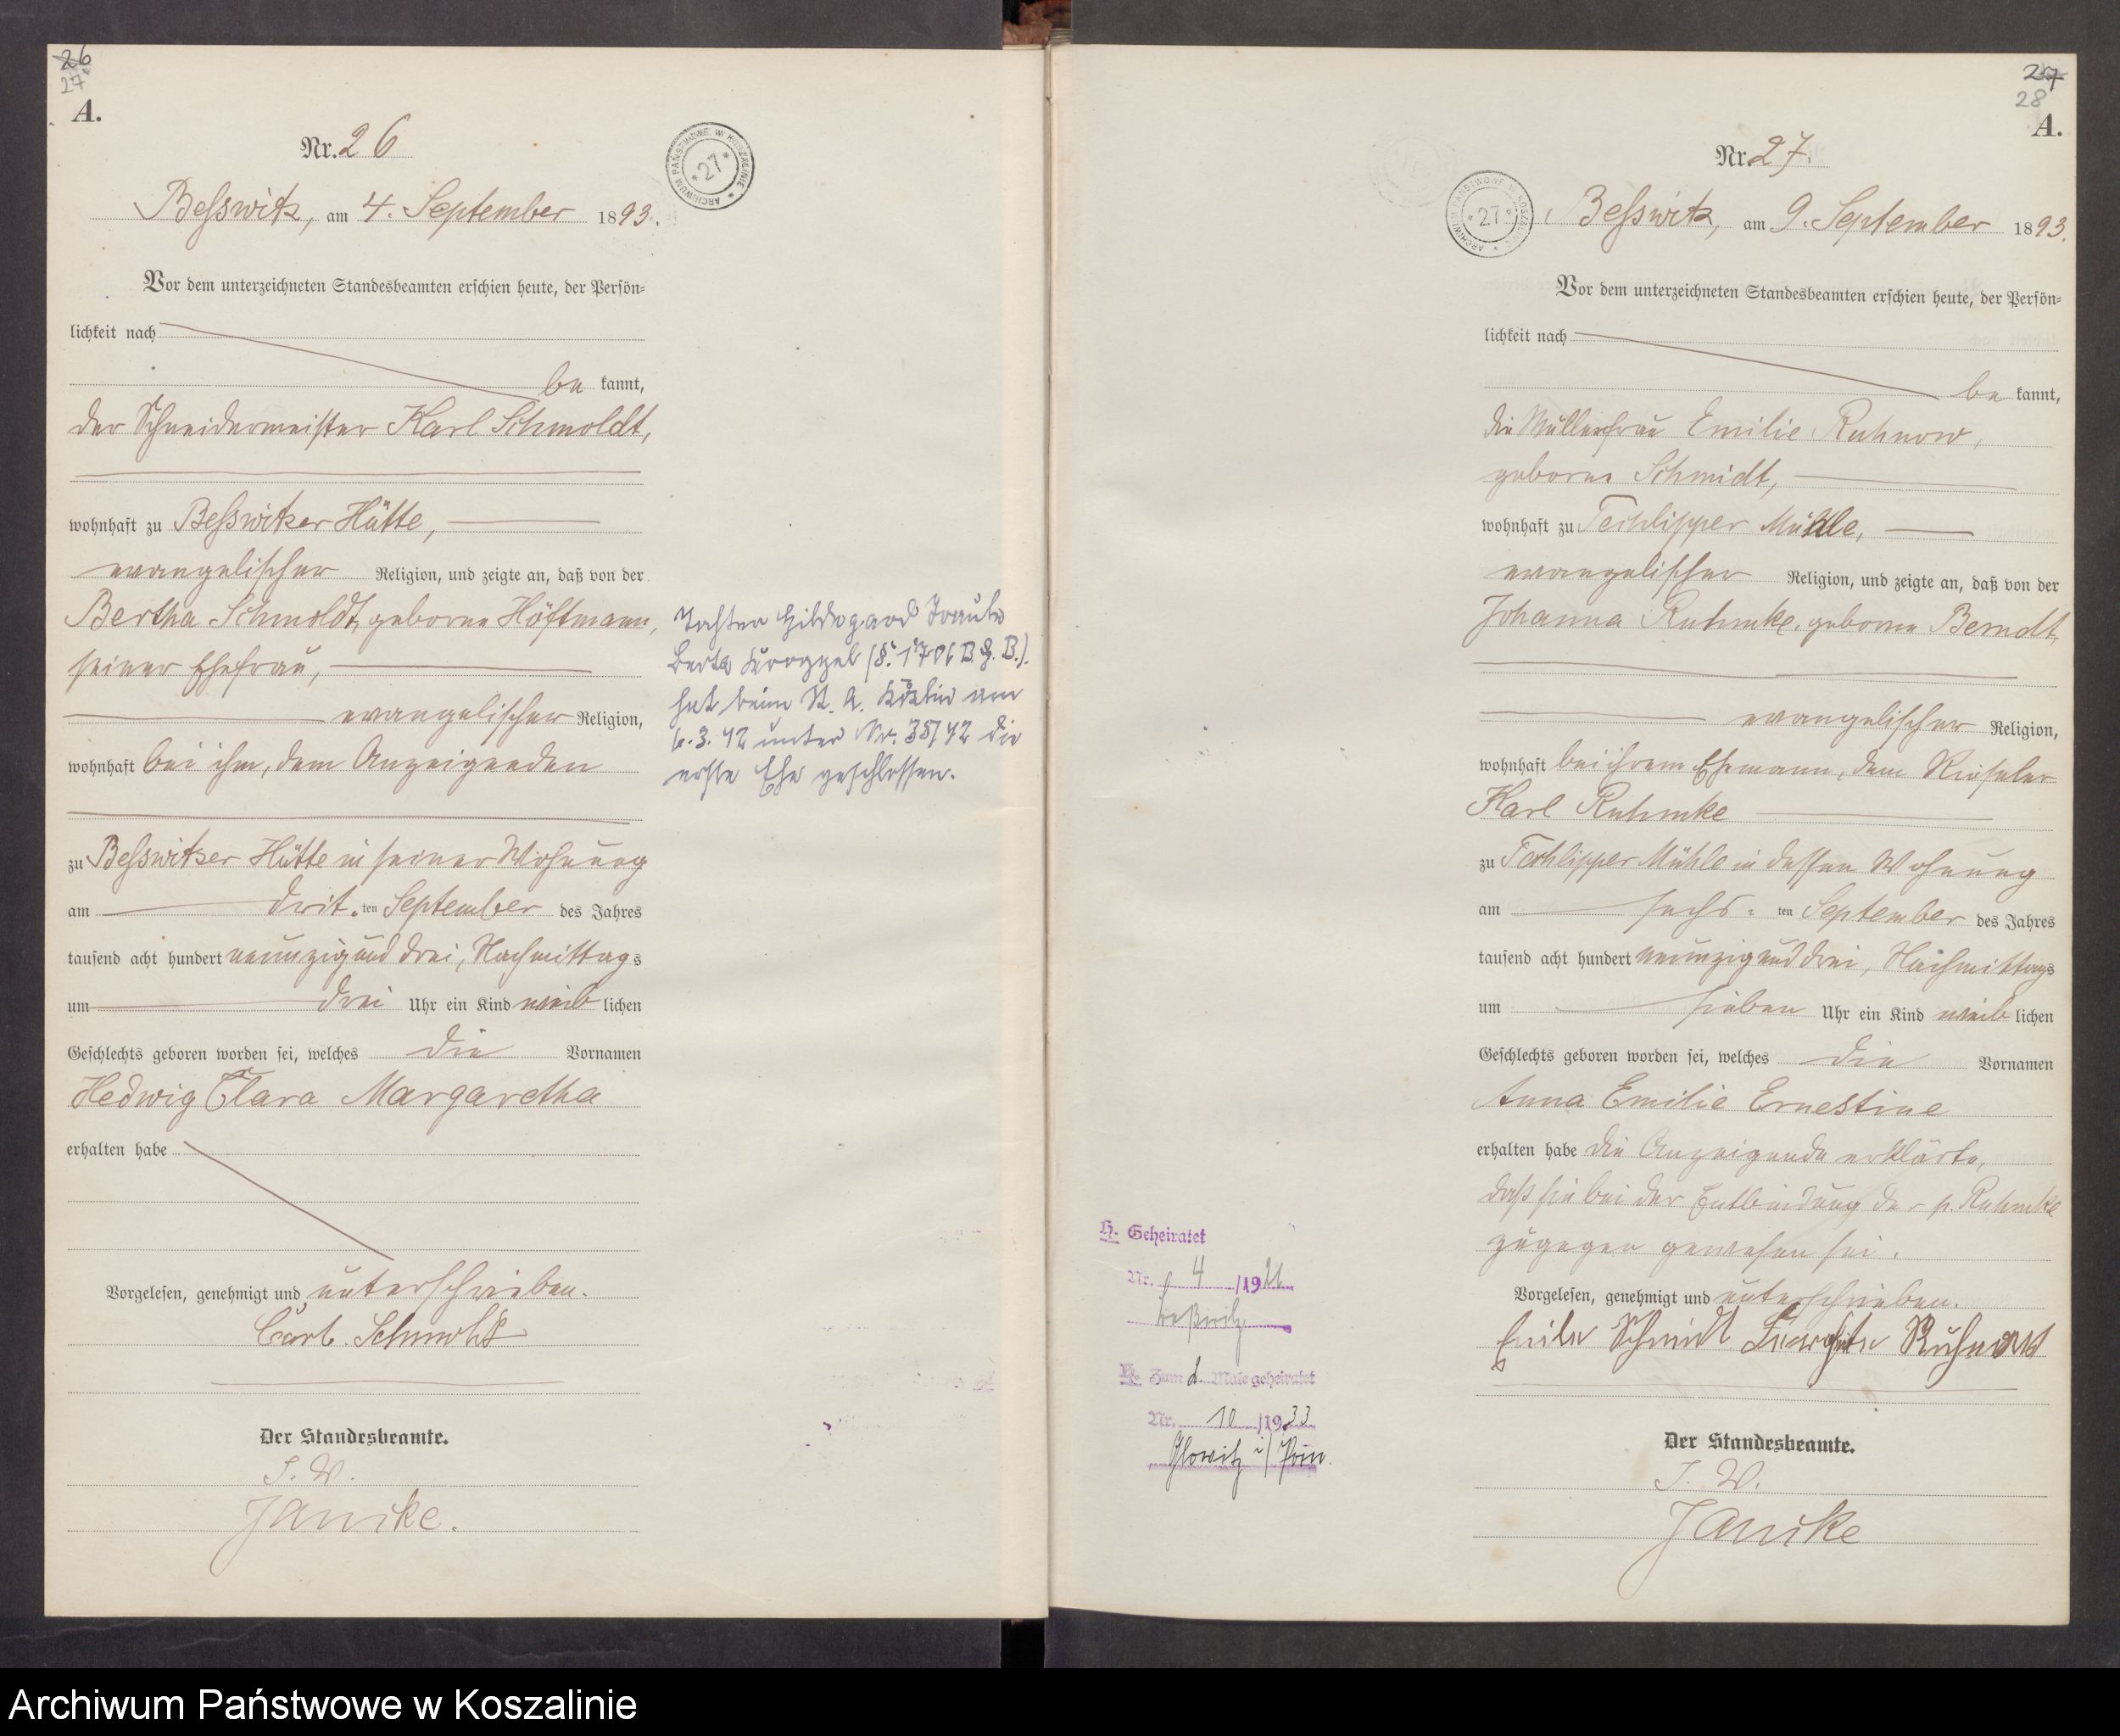 26
27
A.
Nr. 26
ARCHIWUM PAŃSTWOWE W KOSZALINIE
* 27 *
Beßwitz, am 4. September 1893.
Vor dem unterzeichneten Standesbeamten erschien heute, der Persön-
lichkeit nach
be kannt,
der Schneidermeister Karl Schmoldt,
wohnhaft zu Beßwitzer Hütte,
evangelischer Religion, und zeigte an, daß von der
Bertha Schmoldt, geborne Höftmann,
seiner Ehefrau,
evangelischer Religion,
wohnhaft bei ihm, dem Anzeigenden
zu Beßwitzer Hütte in seiner Wohnung
am drit-ten September des Jahres
tausend acht hundert neunzig und drei, Nachmittags
um drei Uhr ein Kind weib lichen
Geschlechts geboren worden sei, welches die Vornamen
Hedwig Clara Margaretha
erhalten habe
Vorgelesen, genehmigt und unterschrieben.
Carl Schmoldt
Der Standesbeamte.
J. V.
Janike.
Tochter Hildegard Traute
Berta (§. 1706 B.G.B.).
hat beim St. A. Köslin am
6.3.42 unter Nr. 38/42 die
erste Ehe geschlossen.
27
28
A.
Nr. 27.
ARCHIWUM PAŃSTWOWE W KOSZALINIE
* 27 *
Beßwitz, am 9. September 1893.
Vor dem unterzeichneten Standesbeamten erschien heute, der Persön-
lichkeit nach
be kannt,
die Müllerfrau Emilie Ruhnow,
geborne Schmidt,
wohnhaft zu Techlipper Mühle,
evangelischer Religion, und zeigte an, daß von der
Johanna Ruhmke, geborne Berndt,
evangelischer Religion,
wohnhaft bei ihrem Ehemann, dem Rieseler
Karl Ruhmke
zu Techlipper Mühle in dessen Wohnung
am sechs-ten September des Jahres
tausend acht hundert neunzig und drei, Nachmittags
um sieben Uhr ein Kind weib lichen
Geschlechts geboren worden sei, welches die Vornamen
Anna Emilie Ernestine
erhalten habe die Anzeigende erklärte,
daß sie bei der Entbindung der p. Ruhmke
zugegen gewesen sei.
Vorgelesen, genehmigt und unterschrieben.
Emilie Schmidt Ruhnow
Der Standesbeamte.
J. V.
Janike
H. Geheiratet
Nr. 4 /1921
Beßwitz
H. Zum 2. Male geheiratet
Nr. 10 /1933
Glowitz i/Pom.
Archiwum Państwowe w Koszalinie